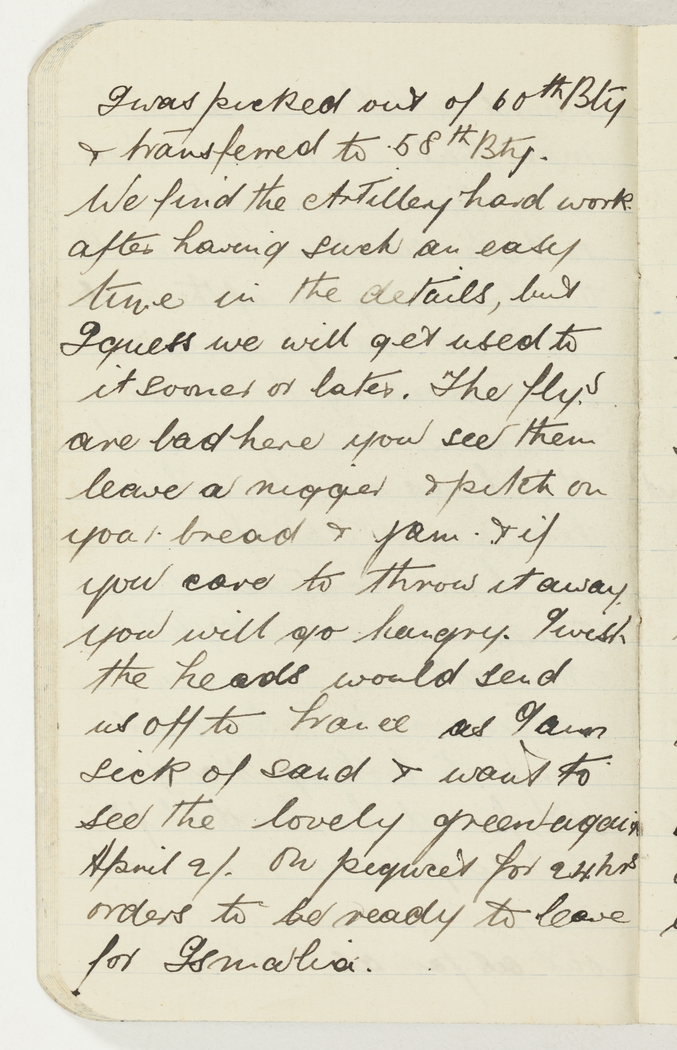 I was picked out of 60th Bty
& transferred to 58th Bty.
We find the Artillery hard work
after having such an easy
time in the details, but
I guess we will get used to
it sooner or later. The fly's
are bad here you see them
leave a nigger & pitch on
your bread & jam. & if
you care to throw it away
you will go hungry. I wish
the heads would send
us off to France as I am
sick of sand & want to
see the lovely green again
April 9/. On piquet for 24 hrs
orders to be ready to leave
for Ismalia.